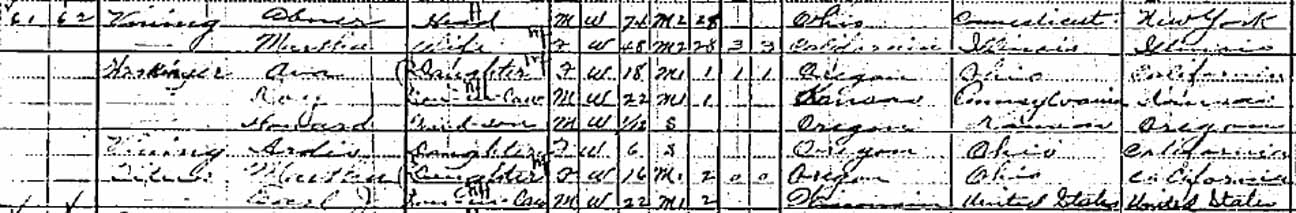 61 62 Vining Abner Head M W 74 M2 28 Ohio Connecticut New York
— Martha Wife F W 48 M2 28 3 3 California Illinois Illinois
Ava Daughter F W 18 M1 1 1 1 Oregon Ohio California
— Roy Son-in-Law M W 22 M1 1 Kansas Pennsylvania
— Howard Grandson M W 1/12 S Oregon Kansas Oregon
Vining Ardis Daughter F W 6 S Oregon Ohio California
Martha Daughter F W 16 M1 2 0 0 Oregon Ohio California
— Son-in-Law M W 22 M1 2 Wisconsin United States United States